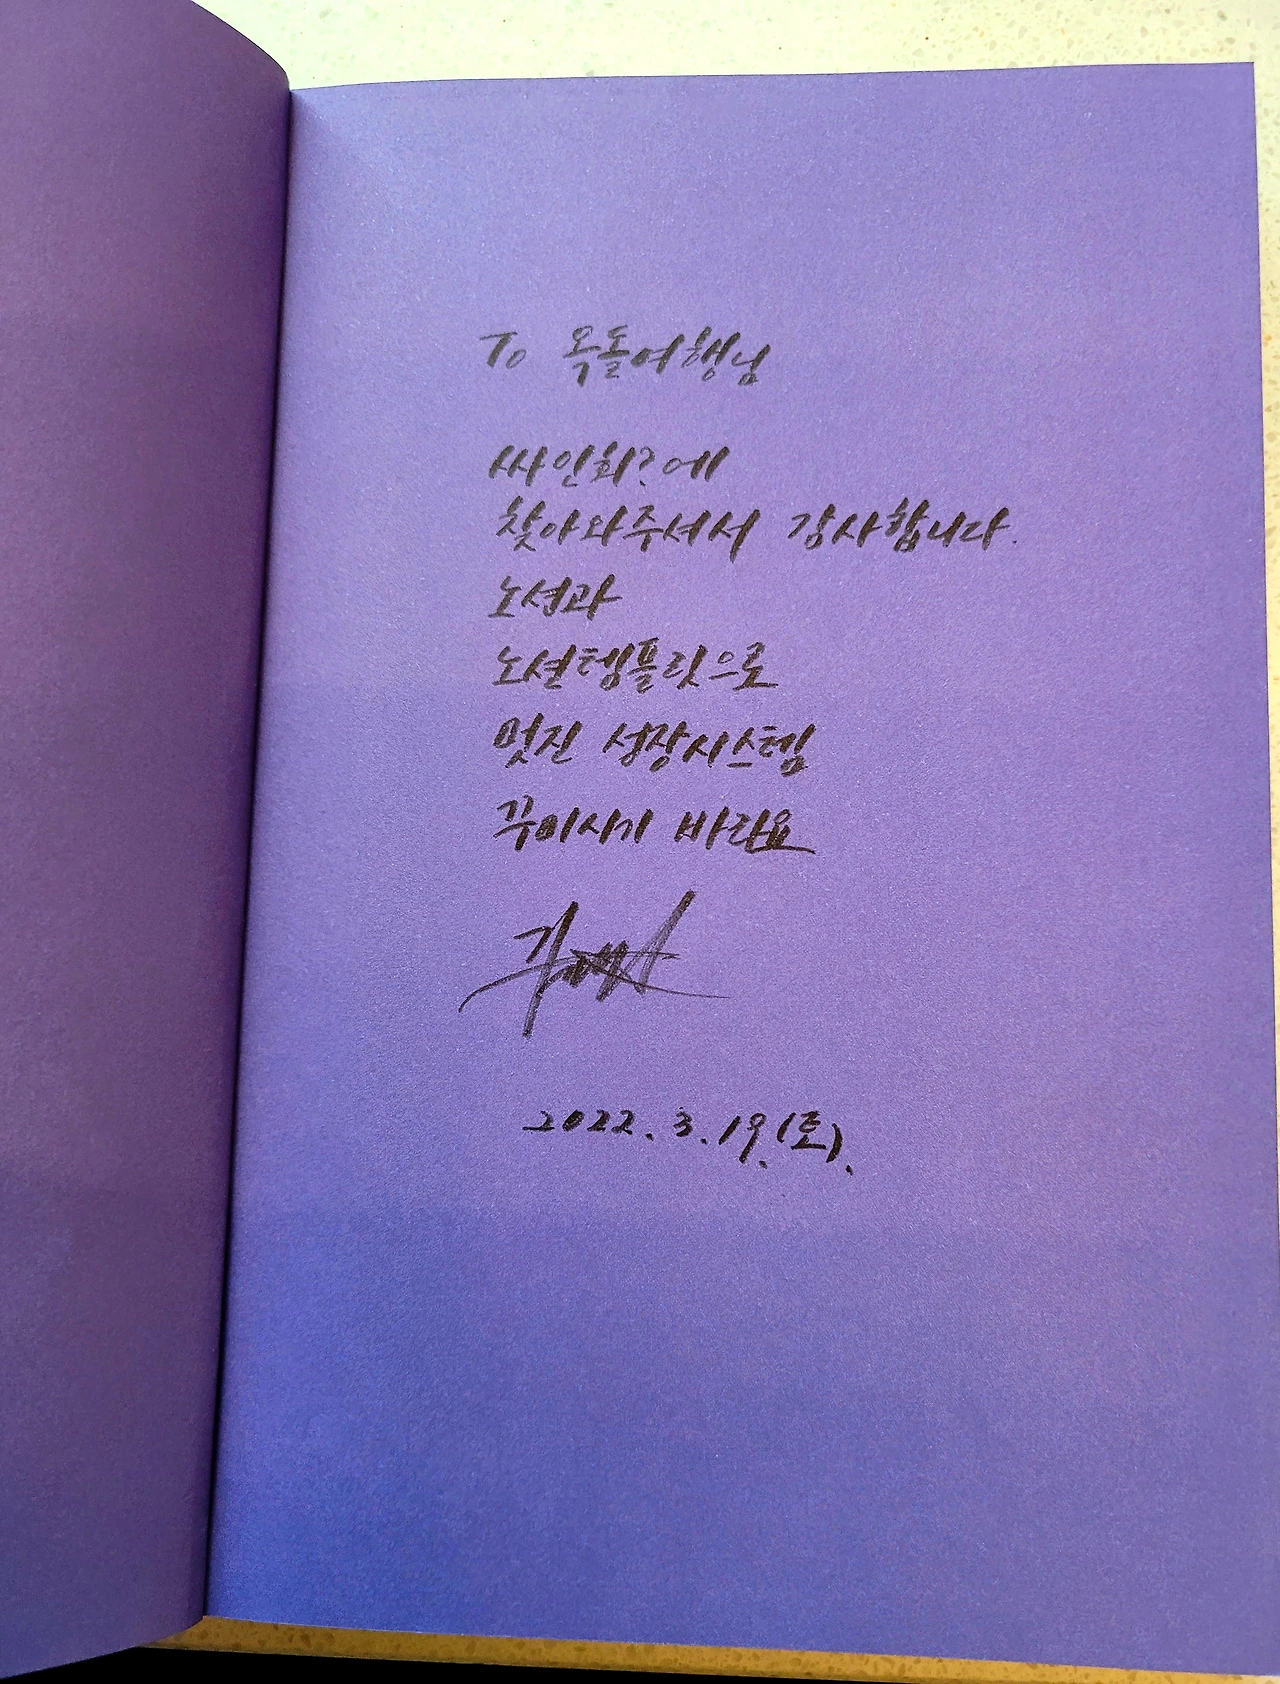 To 옥돌여행님
싸인회?에
찾아와주셔서 감사합니다.
노션과
노션템플릿으로
멋진 성장시스템
꾸미시기 바라요
2022. 3. 19. (토).